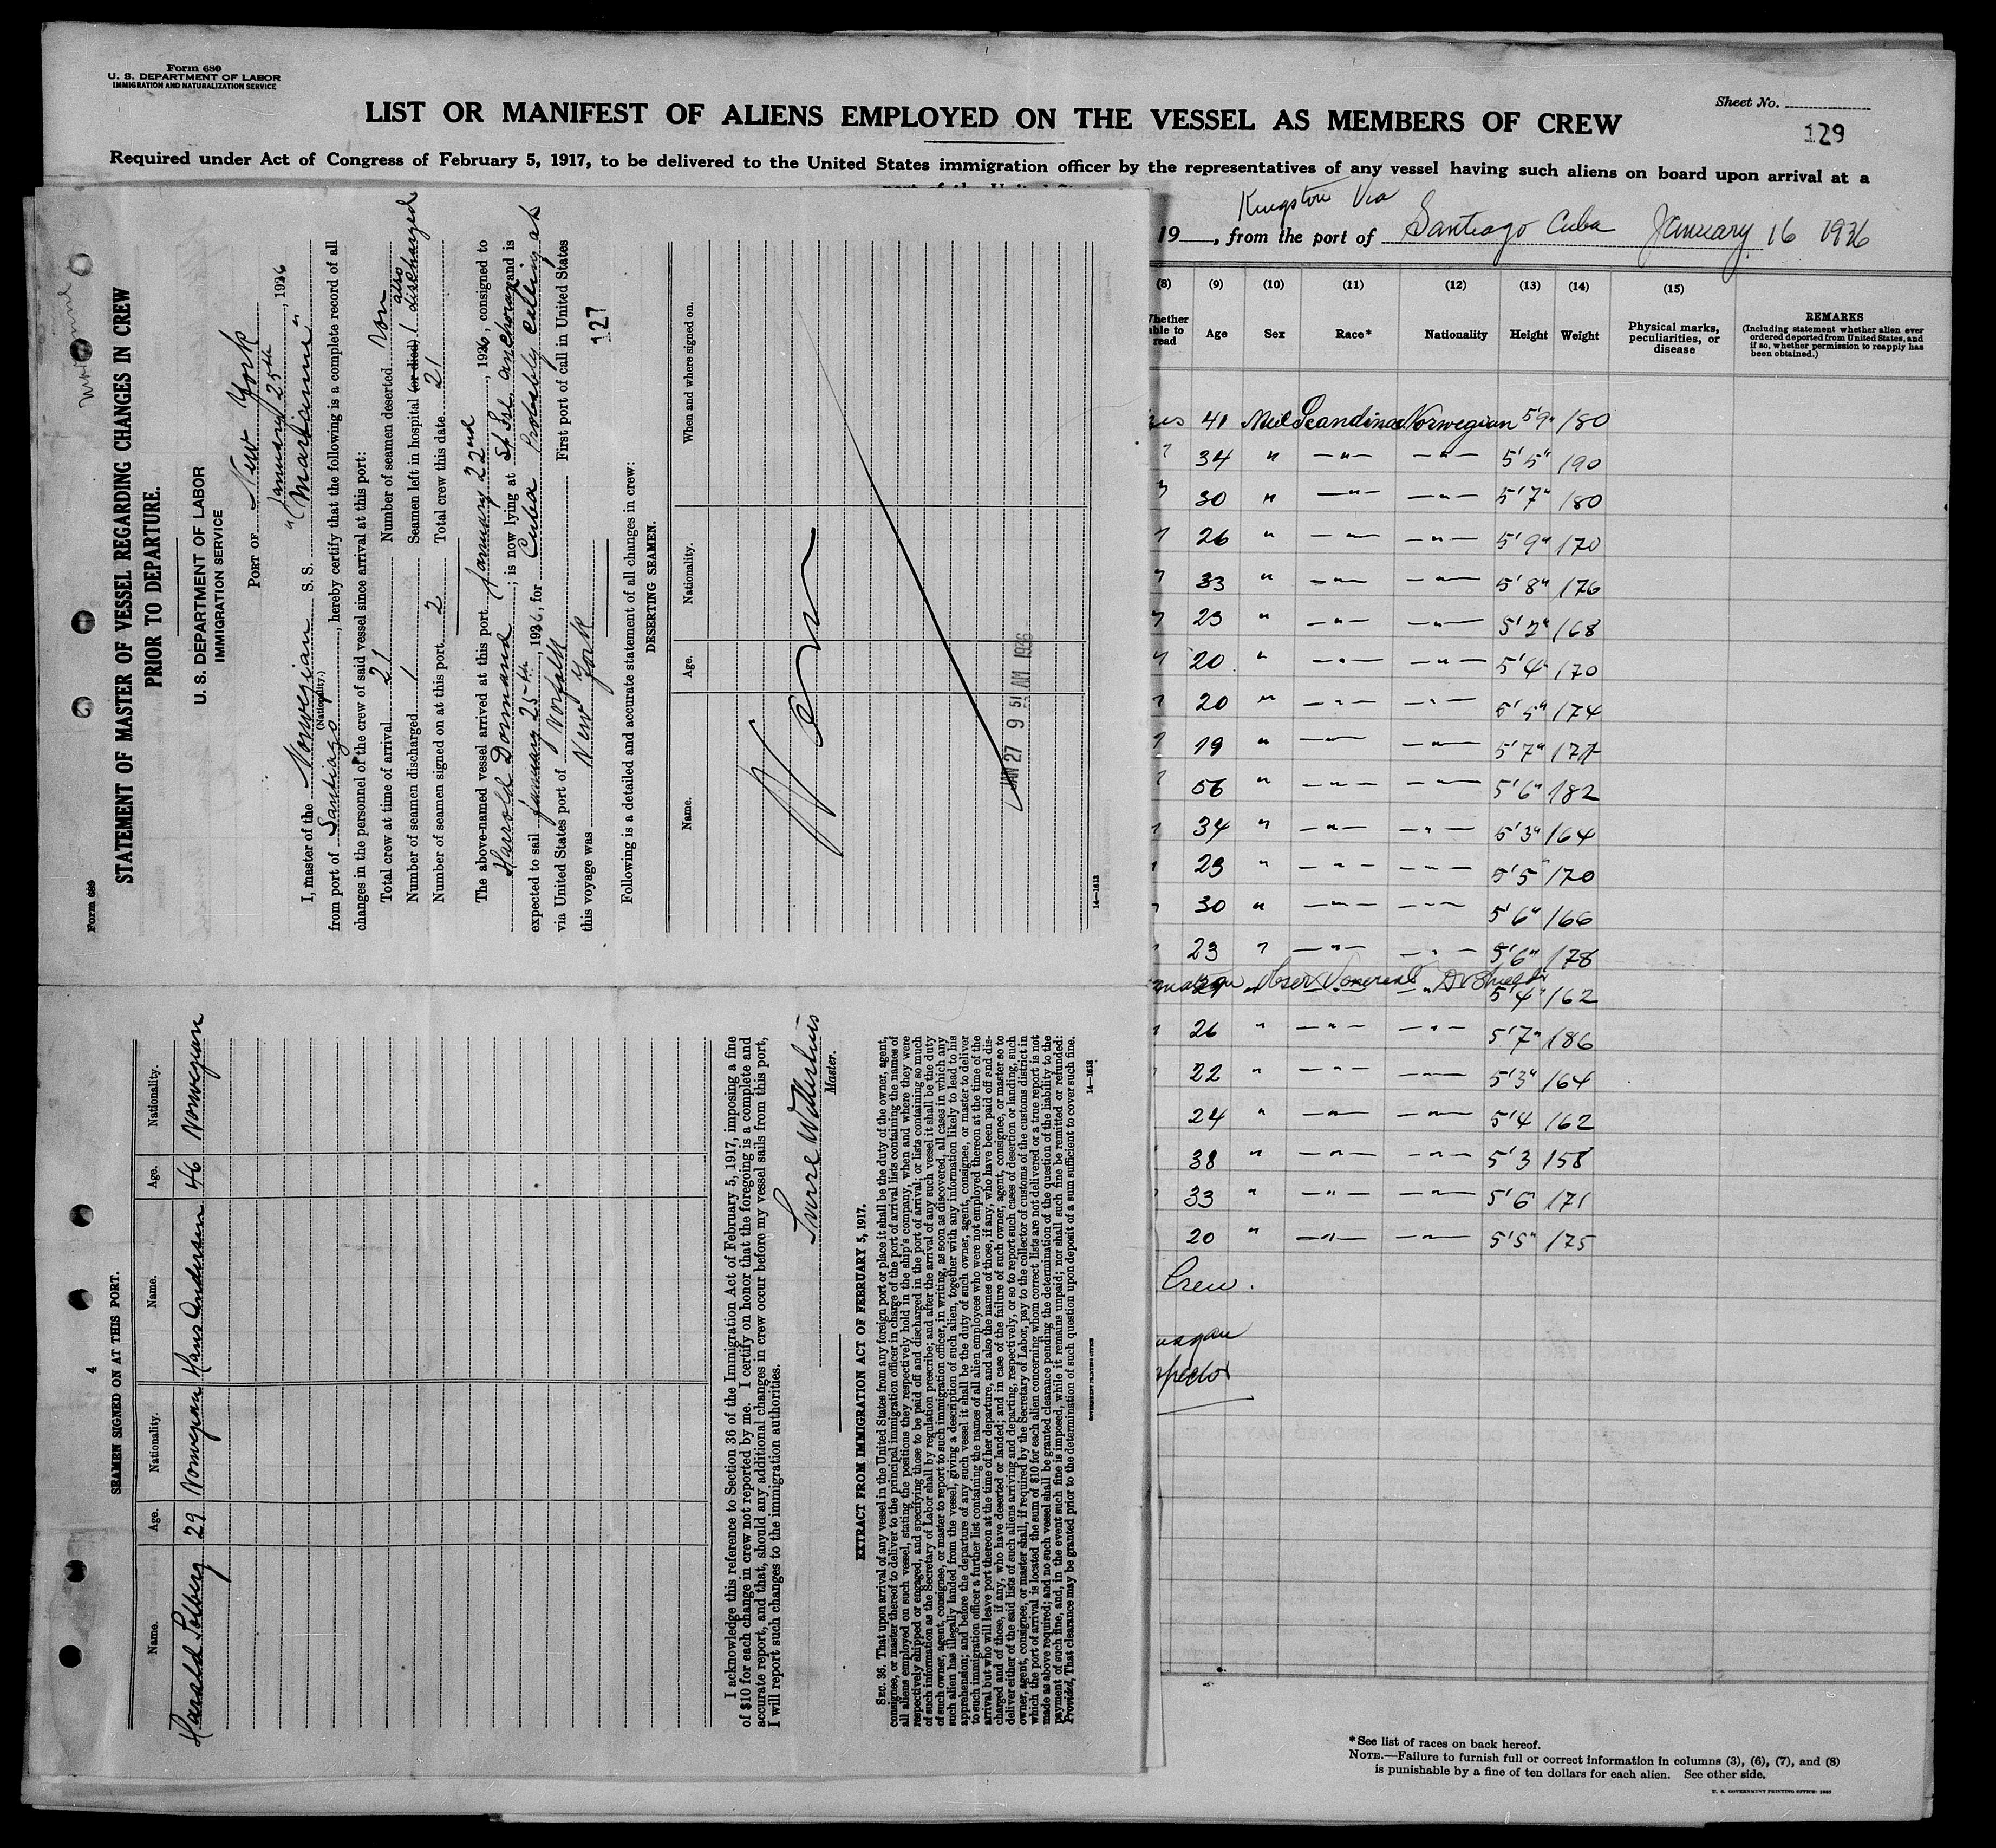 Form 680
U. S. DEPARTMENT OF LABOR
IMMIGRATION AND NATURALIZATION SERVICE
LIST OR MANIFEST OF ALIENS EMPLOYED ON THE VESSEL AS MEMBERS OF CREW
Sheet No.
129
Required under Act of Congress of February 5, 1917, to be delivered to the United States immigration officer by the representatives of any vessel having such aliens on board upon arrival at a
Kingston Via
19__, from the port of Santiago Cuba January 16 1936
(8) (9) (10) (11) (12) (13) (14) (15)
Whether able to read Age Sex Race* Nationality Height Weight Physical marks, peculiarities, or disease REMARKS
(Including statement whether alien ever ordered deported from United States, and if so, whether permission to reapply has been obtained.)
41 Scandinav Norwegian 5'9" 180
34 " —"— —"— 5'5" 190
30 " —"— —"— 5'7" 180
26 " —"— —"— 5'9" 170
33 " —"— —"— 5'8" 176
23 " —"— —"— 5'7" 168
20 " —"— —"— 5'4" 170
20 " —"— —"— 5'5" 174
19 " —"— —"— 5'7" 177
56 " —"— —"— 5'6" 182
34 " —"— —"— 5'3" 164
23 " —"— —"— 5'5" 170
30 " —"— —"— 5'6" 166
23 " —"— —"— 5'6" 178
5'4" 162
26 " —"— —"— 5'7" 186
22 " —"— —"— 5'3" 164
24 " —"— —"— 5'4 162
38 " —"— —"— 5'3 158
33 " —"— —"— 5'6 171
20 " —"— —"— 5'5" 175
Crew.
*See list of races on back hereof.
NOTE.—Failure to furnish full or correct information in columns (3), (6), (7), and (8)
is punishable by a fine of ten dollars for each alien. See other side.
U. S. GOVERNMENT PRINTING OFFICE: 1935
Form 689
STATEMENT OF MASTER OF VESSEL REGARDING CHANGES IN CREW
PRIOR TO DEPARTURE.
U. S. DEPARTMENT OF LABOR
IMMIGRATION SERVICE
PORT OF New York
January 25th, 1936
I, master of the Norwegian S. S. "Martianna"
(Nationality.)
from port of Santiago, hereby certify that the following is a complete record of all
changes in the personnel of the crew of said vessel since arrival at this port:
Total crew at time of arrival 21 Number of seamen deserted Non
Number of seamen discharged 1 Seamen left in hospital (or died) 1 also discharged
Number of seamen signed on at this port 2 Total crew this date 21
The above-named vessel arrived at this port January 22nd, 1936, consigned to
Harold Dormand; is now lying at St Isl anchorage and is
expected to sail January 25th, 1936, for Cuba Probably calling at
via United States port of Norfolk First port of call in United States
this voyage was New York
127
Following is a detailed and accurate statement of all changes in crew:
DESERTING SEAMEN.
Name. Age. Nationality. When and where signed on.
Non
JAN 27 9 51 AM 1936
14—1613
4
SEAMEN SIGNED ON AT THIS PORT.
Name. Age. Nationality. Name. Age. Nationality.
Harald Solberg 29 Norwegian Hans Andersen 46 Norwegian
I acknowledge this reference to Section 36 of the Immigration Act of February 5, 1917, imposing a fine
of $10 for each change in crew not reported by me. I certify on honor that the foregoing is a complete and
accurate report, and that, should any additional changes in crew occur before my vessel sails from this port,
I will report such changes to the immigration authorities.
Sverre
Master.
EXTRACT FROM IMMIGRATION ACT OF FEBRUARY 5, 1917.
SEC. 36. That upon arrival of any vessel in the United States from any foreign port or place it shall be the duty of the owner, agent,
consignee, or master thereof to deliver to the principal immigration officer in charge of the port of arrival lists containing the names of
all aliens employed on such vessel, stating the positions they respectively hold in the ship's company, when and where they were
respectively shipped or engaged, and specifying those to be paid off and discharged in the port of arrival; or lists containing so much
of such information as the Secretary of Labor shall by regulation prescribe; and after the arrival of any such vessel it shall be the duty
of such owner, agent, consignee, or master to report to such immigration officer, in writing, as soon as discovered, all cases in which any
such alien has illegally landed from the vessel, giving a description of such alien, together with any information likely to lead to his
apprehension; and before the departure of any such vessel it shall be the duty of such owner, agent, consignee, or master to deliver
to such immigration officer a further list containing the names of all alien employees who were not employed thereon at the time of the
arrival but who will leave port thereon at the time of her departure, and also the names of those, if any, who have been paid off and dis-
charged and of those, if any, who have deserted or landed; and in case of the failure of such owner, agent, consignee, or master so to
deliver either of the said lists of such aliens arriving and departing, respectively, or so to report such cases of desertion or landing, such
owner, agent, consignee, or master shall, if required by the Secretary of Labor, pay to the collector of customs of the customs district in
which the port of arrival is located the sum of $10 for each alien concerning whom correct lists are not delivered or a true report is not
made as above required; and no such vessel shall be granted clearance pending the determination of the question of the liability to the
payment of such fine, and, in the event such fine is imposed, while it remains unpaid; nor shall such fine be remitted or refunded:
Provided, That clearance may be granted prior to the determination of such question upon deposit of a sum sufficient to cover such fine.
GOVERNMENT PRINTING OFFICE
14—1613